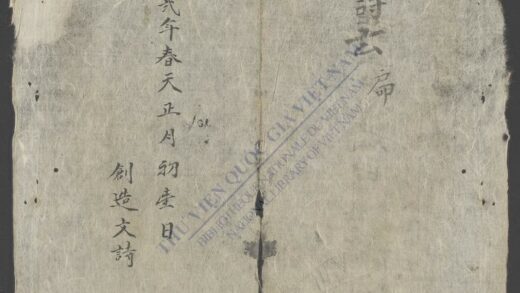 扁
年春天正月初壹日
創造文詩
THƯ VIỆN QUỐC GIA VIỆT NAM
BIBLIOTHÈQUE NATIONALE DU VIETNAM
NATIONAL LIBRARY OF VIETNAM